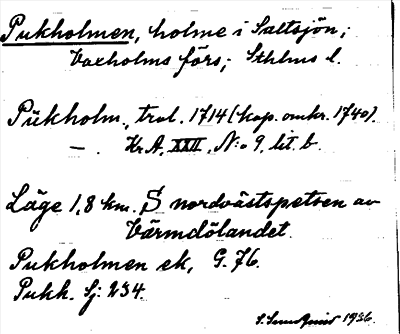 Pukholmen, holme i Saltsjön;
Vaxholms förs; Sthlms l.
Pükholm., trol. 1714 (kop. omkr. 1740).
— . Kr.A, XXII, N:o 9, lit. b.
Läge 1,8 km. S nordvästspetsen av
Värmdölandet.
Pukholmen ek, G. 76.
Pukh. Sj: 234.
1936.